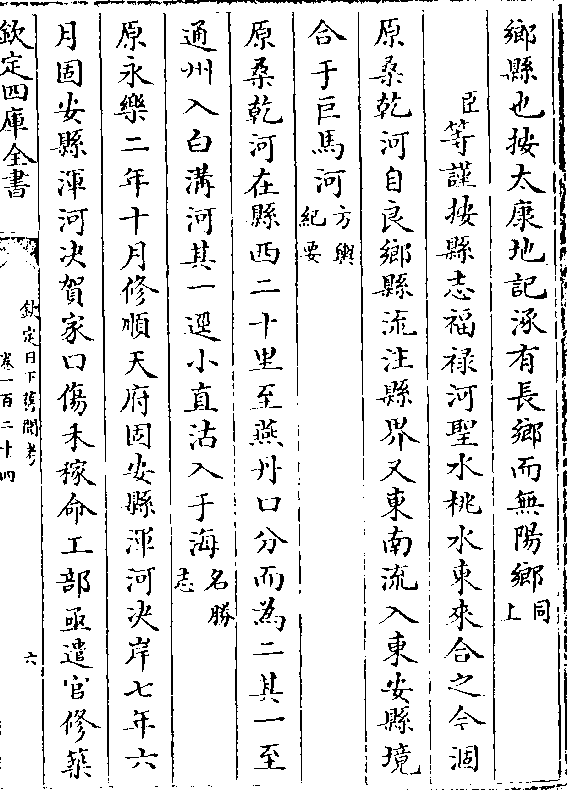 鄉縣也按太康地記涿有長鄉而無陽鄉同上
臣等謹按縣志福祿河聖水桃水東來合之今涸
原桑乾河自良鄉縣流注縣界又東南流入東安縣境
合于巨馬河方輿紀要
原桑乾河在縣西二十里至燕丹口分而為二其一至
通州入白溝河其一逕小直沽入于海名勝志
原永樂二年十月修順天府固安縣渾河決岸七年六
月固安縣渾河決賀家口傷禾稼命工部亟遣官修築
欽定四庫全書
欽定日下舊聞考
卷一百二十四
六